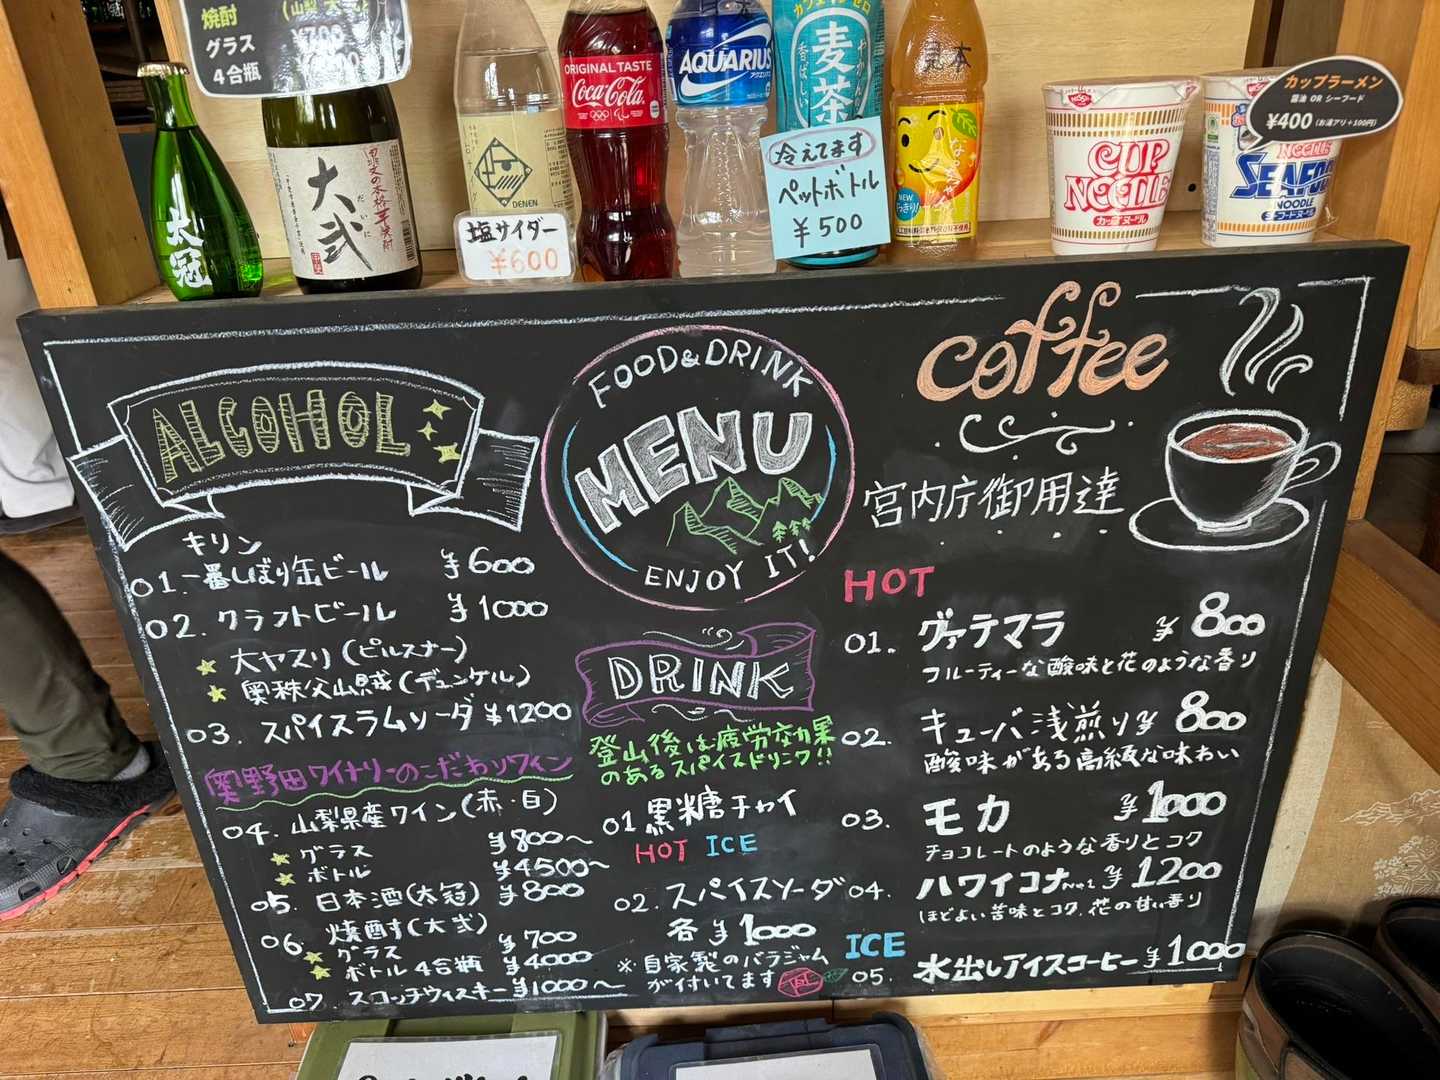 焼酎
(山梨 大弐)
グラス
¥700
4合瓶
太冠
大弐
だいに
DENEN
塩サイダー
¥600
ORIGINAL TASTE
Coca-Cola
AQUARIUS
アクエリアス
カフェインゼロ
麦茶
香ばしい
冷えてます
ペットボトル
¥500
見本
NEW
NISSIN
CUP NOODLE
カップヌードル
NOODLE
SEAFOOD
NOODLE
シーフードヌードル
カップラーメン
醤油 OR シーフード
¥400 (お湯アリ+100円)
ALCOHOL
キリン
01.一番しぼり缶ビール ¥600
02.クラフトビール ¥1000
大ヤスリ(ピルスナー)
奥秩父山賊(デュンケル)
03.スパイスラムソーダ ¥1200
奥野田ワイナリーのこだわりワイン
04.山梨県産ワイン(赤・白)
グラス ¥800〜
ボトル ¥4500〜
05.日本酒(太冠) ¥800
06.焼酎(大弐)
グラス ¥700
ボトル4合瓶 ¥4000
07.スコッチウィスキー ¥1000〜
FOOD&DRINK
MENU
ENJOY IT!
DRINK
登山後は疲労効果
のあるスパイスドリンク!!
01 黒糖チャイ
HOT ICE
02.スパイスソーダ
各¥1000
※自家製のバラジャム
が付いてます
coffee
宮内庁御用達
HOT
01. グァテマラ ¥800
フルーティーな酸味と花のような香り
02. キューバ浅煎り ¥800
酸味がある高級な味わい
03. モカ ¥1000
チョコレートのような香りとコク
04. ハワイコナNo.1 ¥1200
ほどよい苦味とコク.花の甘い香り
ICE
05. 水出しアイスコーヒー ¥1000